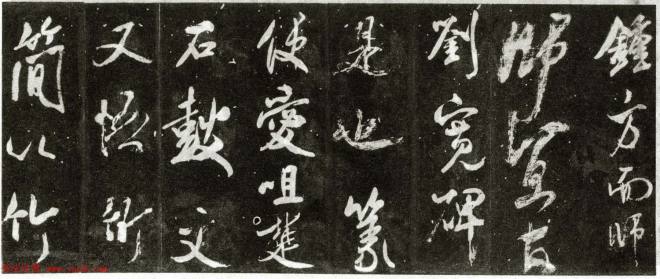 鍾方而師
師宜官
劉寬碑
是也篆
便愛咀楚
石鼓文
又悟竹
簡以竹